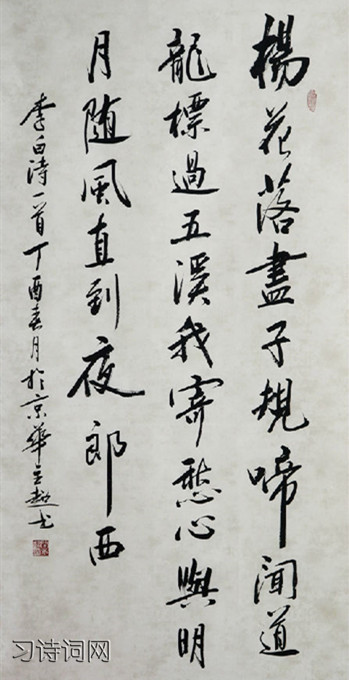 楊花落盡子規啼聞道
龍標過五溪我寄愁心與明
月随風直到夜郎西
李白诗一首丁酉春月於京華超书
习诗词网